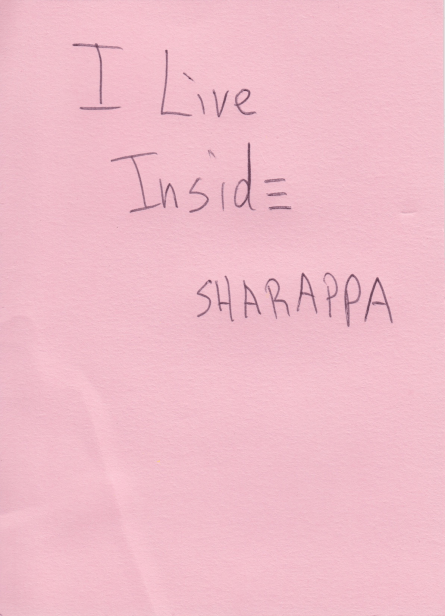 I Live
Insid≡
SHARAPPA